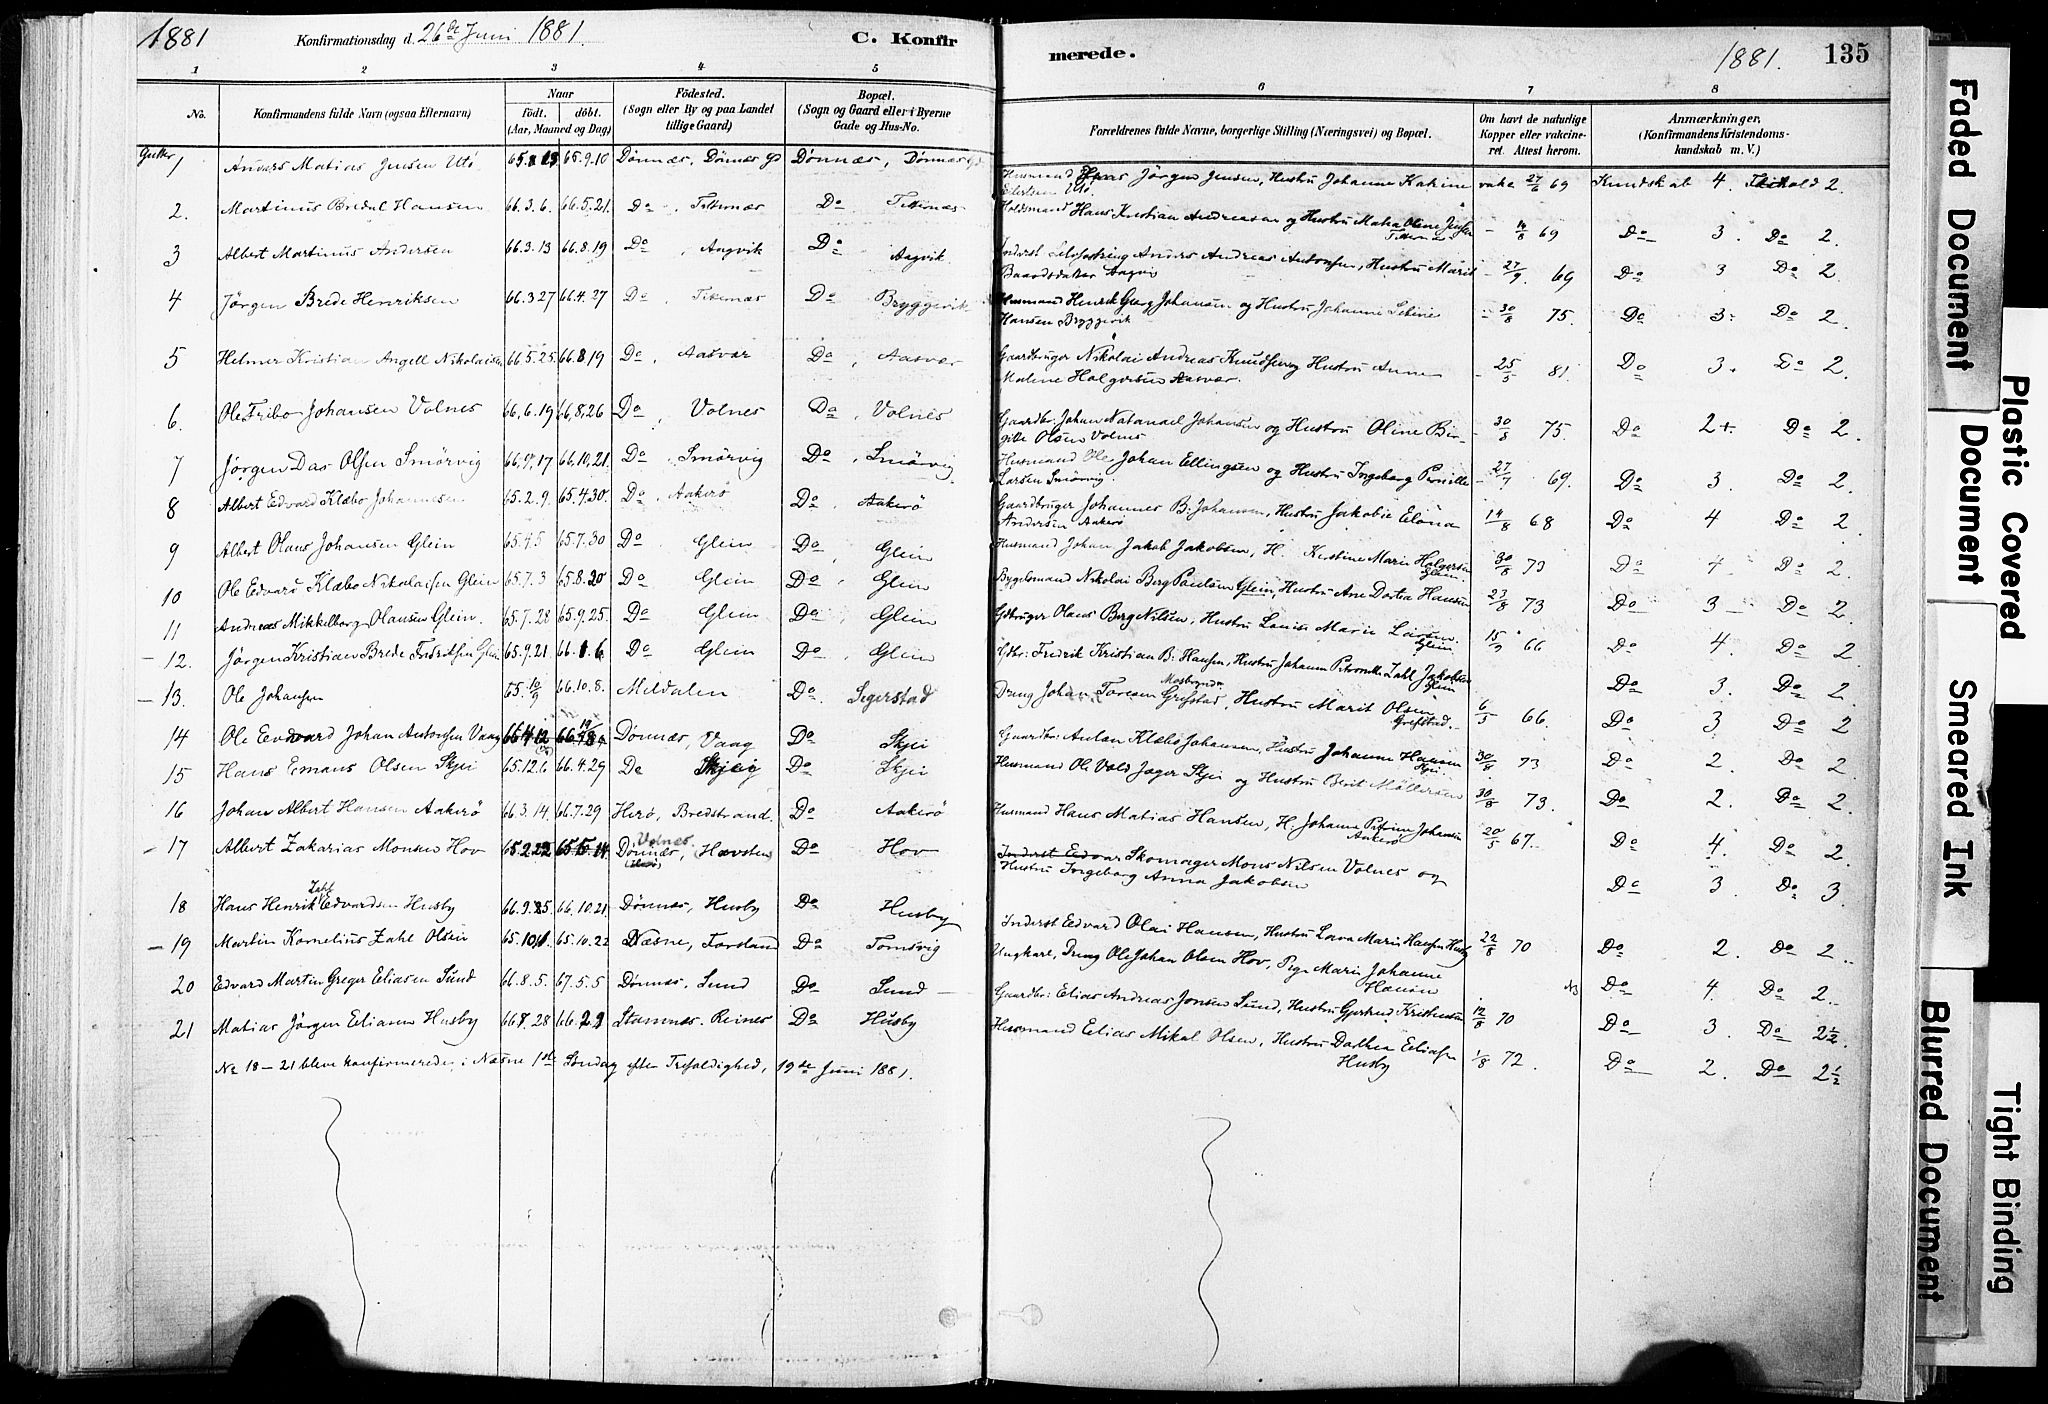 1881 Konfirmationsdag d. 26de Juni 1881. C. Konfir
merede. 1881. 135
1 2 3 4 5 6 7 8
No. Konfirmandens fulde Navn (ogsaa Efternavn) Naar født. døbt. (Aar, Maaned og Dag) Fødested. (Sogn eller By og paa Landet tillige Gaard) Bopæl. (Sogn og Gaard eller i Byerne Gade og Hus-No.
Forældrenes fulde Navne, borgerlige Stilling (Næringsvei) og Bopæl. Om havt de naturlige Kopper eller vakcineret. Attest herom. Anmærkninger. (Konfirmandens Kristendomskundskab m. V.)
Gutter
1 Anders Matias Jensen Utö 65.9.10 Dönnæs, Dönnæs Gd Dönnæs, Dönnæs Gd Husmand Jörgen Jensen, Hustru Johanne Katrine Eilertsen Utö vakc 27/6 69 Kundskab 4. 2.
2. Martinus Bredal Hansen 66.3.6. 66.5.21. Do, Titternæs Do Titternæs Hans Kristian Andreasen og Hustru Olene Jensen Titternæs 69 Do 3. Do 2.
3 Albert Martinus Andersen 66.3.13 66.8.19 Do, Aagvik Do Aagvik Inderst Anders Andreas Antonsen, Hustru Marit Baardsdatter Aagvig 27/9. 69 Do 3 Do 2
4 Jörgen Brede Henriksen 66.3.27 66.4.27 Do, Titternæs Do Bryggevik Husmand Henrik Georg Johansen og Hustru Johanne Hansen Bryggevik 30/8 75. Do 3. Do 2.
5 Helmer Kristian Angell Nikolaisen 66.5.25. 66.8.19 Do, Aasvær Do, Aasvær Gaardbruger Nikolai Andreas Knudsen og Hustru Anne Malene Holgersen Aasvær. 25/5 81. Do 3. Do 2.
6. Ole Fribo Johansen Volnes 66.6.19 66.8.26 Do, Volnes Do, Volnes Gaardbr. Johan Natanael Johansen og Hustru Oline Birgitte Olsen Volnes 30/8 75. Do 2+. Do 2.
7 Jörgen Das Olsen Smörvig 66.9.17 66.10.21. Do, Smörvig Do, Smörvig Husmand Ole Johan Ellingsen og Hustru Ingeborg Pernille Larsen Smörvig. 69. Do 3. Do 2.
8 Albert Edvard Klæbo Johannesen 65.2.9. 65.4.30. Do, Aakerö Do, Aakerö Gaardbruger Johannes B. Johansen, Hustru Jakobie Andersen Aakerö 14/8 68 Do 4 Do 2.
9 Albert Olaus Johansen Glein 65.4.5 65.7.30 Do Glein Do, Glein Husmand Johan Jakob Jakobsen, H. Kirstine Marie Holgersen Glein. 30/8 73 Do 4 Do 2.
10 Ole Edvard Klæbo Nikolaisen Glein 65.7.3 65.8.20 Do Glein Do, Glein Bygselmand Nikolai Berg Paulsen Glein, Hustru Ane Dortea Hansen 23/8 73 Do 3 Do 2.
11 Andreas Mikkelborg Olausen Glein. 65.7.28 65.9.25. Do Glein Do, Glein Gdbruger Olaus Berg Nilsen, Hustru Lovise Marie Larsen Glein. 15/9 66 Do 4. Do 2.
12. Jörgen Kristian Brede Fredriksen Glein 65.9.21 66.1.6 Do Glein Do, Glein Gdbr: Fredrik Kristian B. Hansen, Hustru Johanne Petronelle Zahl Jakobsen Glein Do 3. Do 2
13. Ole Johansen 65 10/9 66.10.8. Meldalen Do Segerstad Dreng Johan Toresen Grefstad, Hustru Marit Olsen Grefstad. 6/5 66. Do 3 Do 2
14 Ole Edvard Johan Antonsen Vaag Dönnæs, Vaag Do Skjei Gaardbr: Anton Klæbo Johansen, Hustru Johanne Hansen Skjei. 30/8 73 Do 2. Do 2
15 Hans Emans Olsen Skjei 65.12.6 66.4.29 Do Skjei Do Skjei Husmand Ole Vold Jæger Skjei og Hustru Berit Möllersen 30/8 73. Do 2. Do 2.
16 Johan Albert Hansen Aakerö 66.3.14. 66.7.29 Herö, Bredstrand. Do Aakerö Husmand Hans Matias Hansen, H. Johanne Petrine Johansen Aakerö 20/5 67. Do 4. Do 2.
17 Albert Zakarias Monsen Hov 65.2.22 Volnes Dönnæs, Hævsten Do Hov Inderst Edvar Skomager Mons Nilsen Volnes og Hustru Ingeborg Anna Jakobsen Do 3. Do 3.
18 Hans Henrik Zahl Edvardsen Husby 66.9.25. 66.10.21 Dönnæs, Husby Do Husby Inderst Edvard Olai Hansen, Hustru Lova Marie Hansen Husby 22/8 70 Do 2. Do 2.
19 Martin Kornelius Zahl Olsen 65.10.1. 65.10.22 Næsne, Forsland Do Tomsvig Ungkarl, Dreng Ole Johan Olsen Hov, Pige Marie Johanne Hansen Nb Do 4. Do 2.
20 Edvard Martin Greger Eliasen Sund 66.8.5. 67.5.5 Dönnæs, Sund Do Sund Gaardbr: Elias Andreas Jonsen Sund, Hustru Gjertrud Kristensen 12/8 70 Do 3. Do 2½.
21 Matias Jörgen Eliasen Husby Stamnæs. Reines Do Husby Husmand Elias Mikal Olsen, Hustru Dorthea Eliasen Husby 1/8 72. Do 2. Do 2½
No 18-21 bleve konfirmerede i Næsne 1ste Söndag efter Trefoldighed, 19de Juni 1881.
Faded Document
Plastic Covered Document
Smeared Ink
Blurred Document
Tight Binding